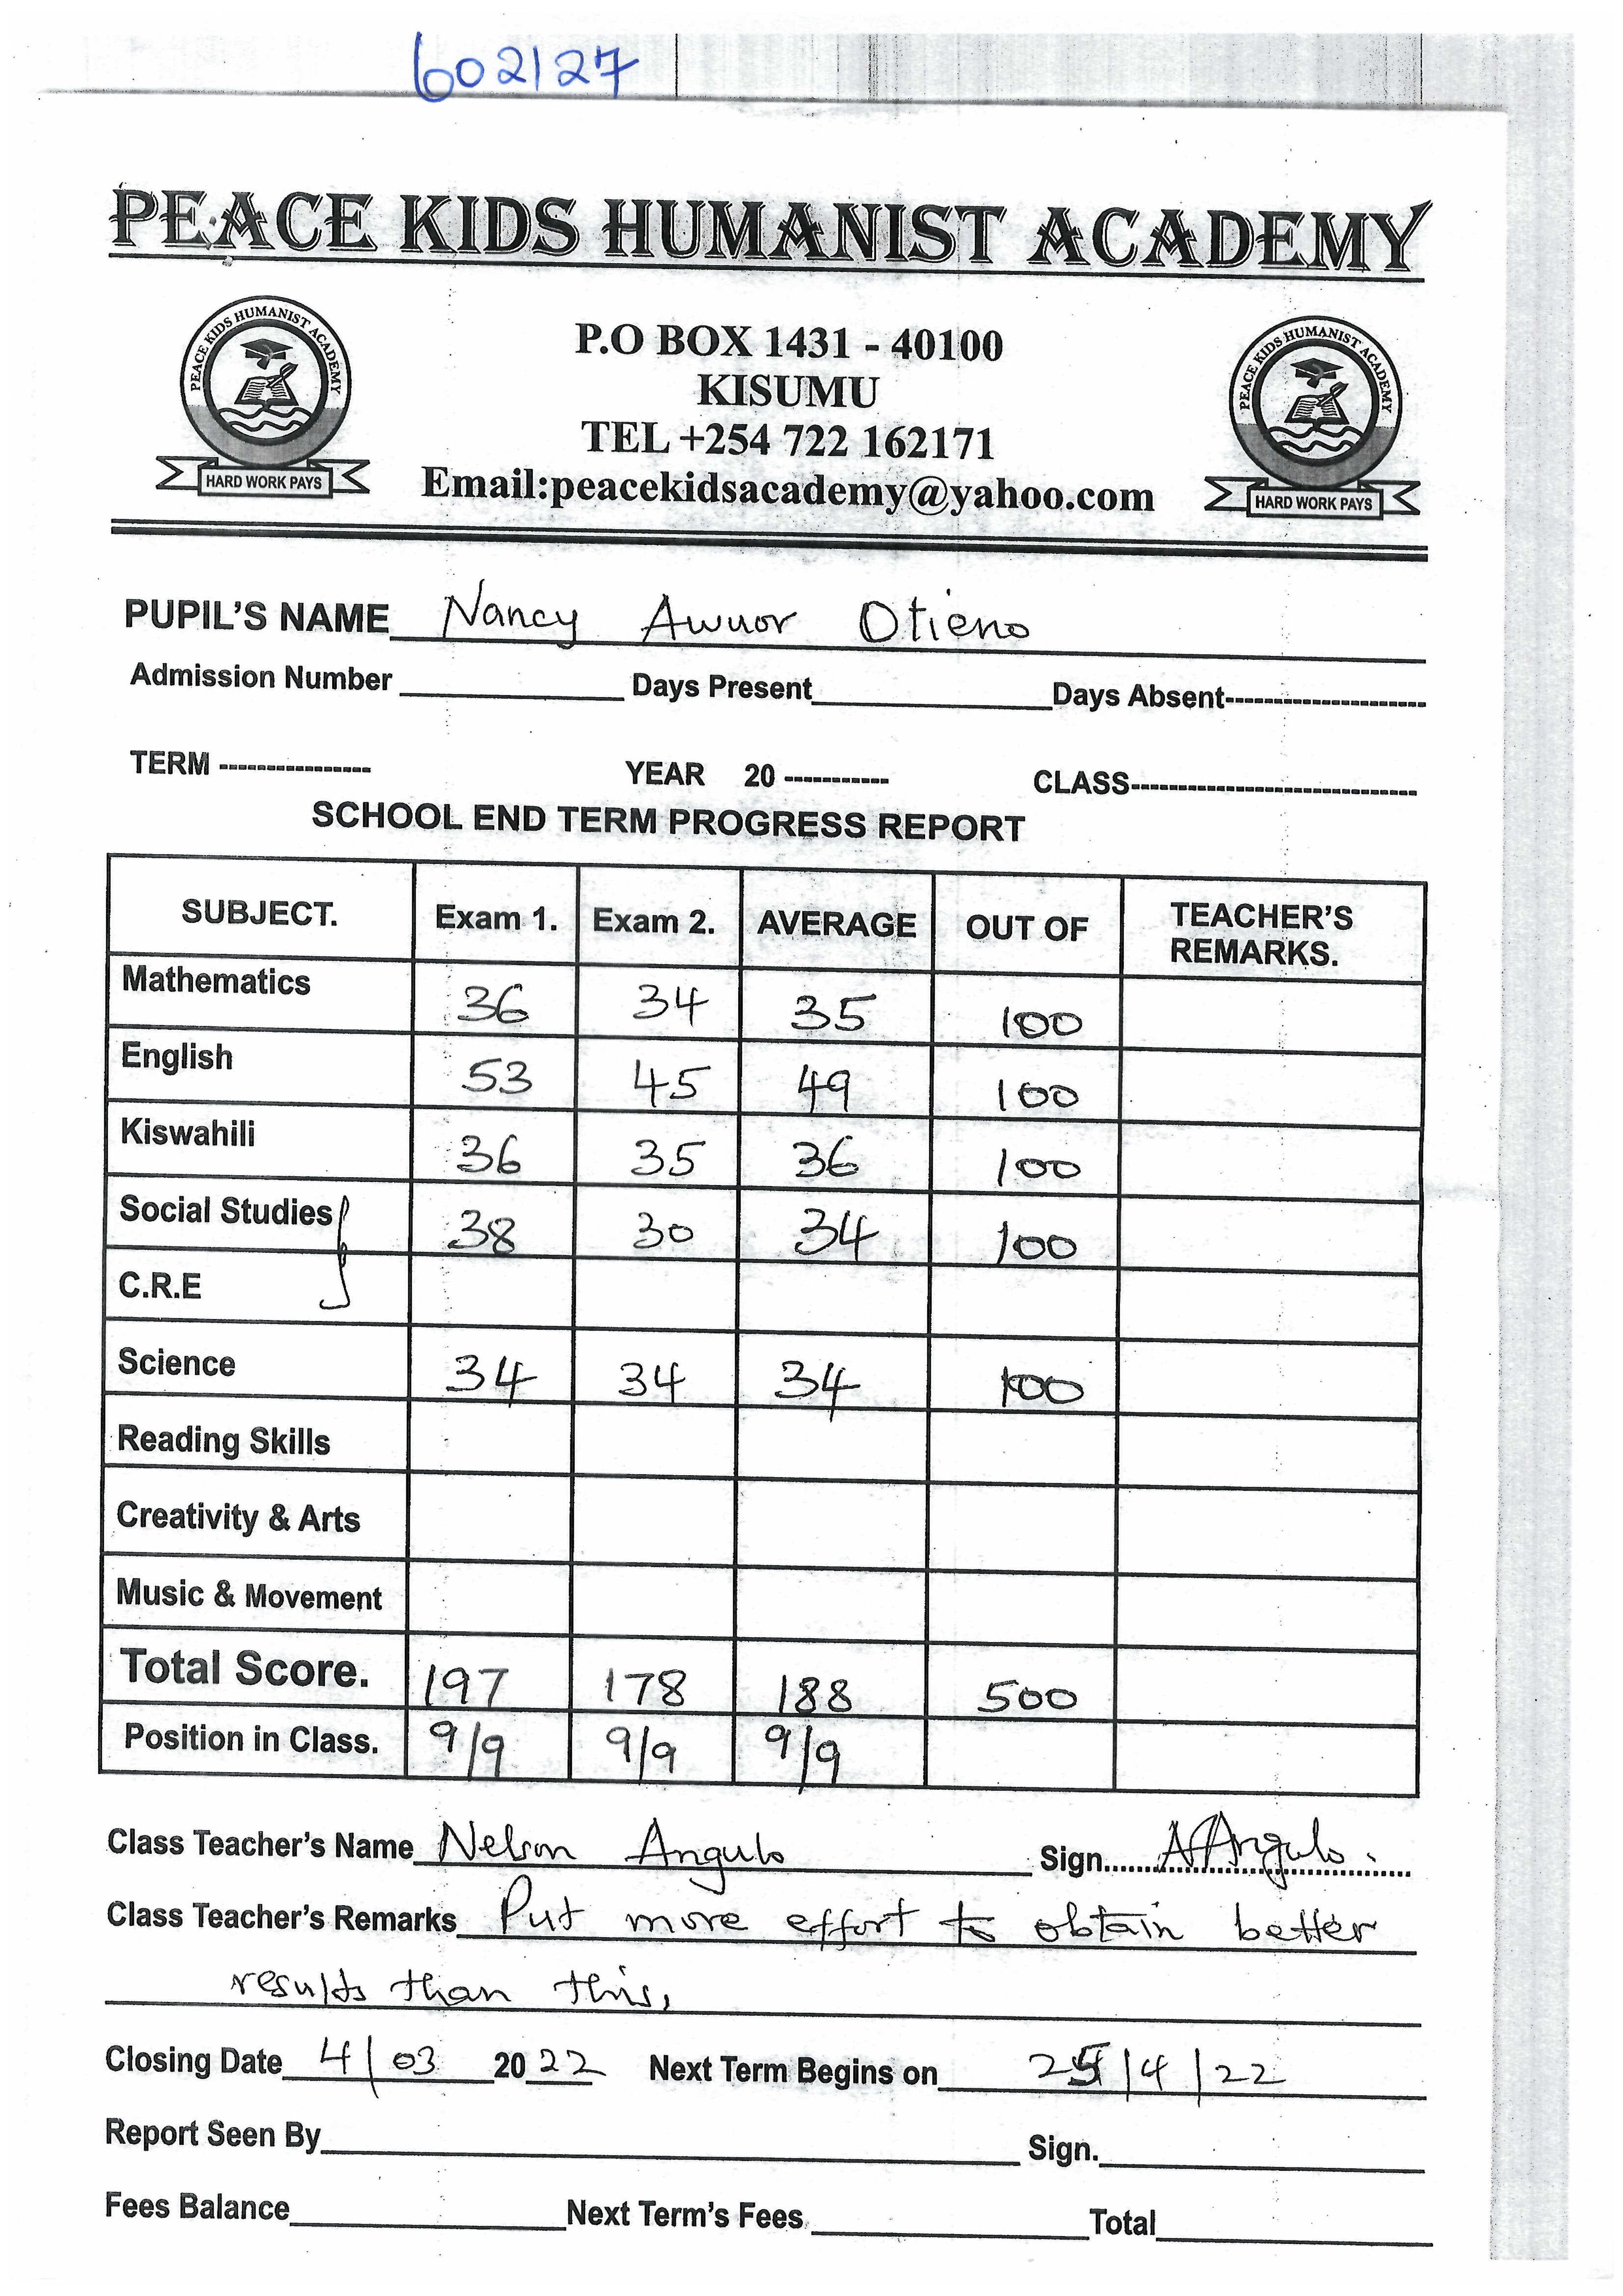 602127
PEACE KIDS HUMANIST ACADEMY
PEACE KIDS HUMANIST ACADEMY
HARD WORK PAYS
P.O BOX 1431 - 40100
KISUMU
TEL +254 722 162171
Email:peacekidsacademy@yahoo.com
PEACE KIDS HUMANIST ACADEMY
HARD WORK PAYS
PUPIL'S NAME Nancy Awuor Otieno
Admission Number Days Present Days Absent
TERM YEAR 20 CLASS
SCHOOL END TERM PROGRESS REPORT
SUBJECT. Exam 1. Exam 2. AVERAGE OUT OF TEACHER'S REMARKS.
Mathematics 36 34 35 100
English 53 45 49 100
Kiswahili 36 35 36 100
Social Studies 38 30 34 100
C.R.E
Science 34 34 34 100
Reading Skills
Creativity & Arts
Music & Movement
Total Score. 197 178 188 500
Position in Class. 9/9 9/9 9/9
Class Teacher's Name Nelson Angulo Sign. AAngulo.
Class Teacher's Remarks Put more effort to obtain better
results than this,
Closing Date 4/03 2022 Next Term Begins on 25/4/22
Report Seen By Sign.
Fees Balance Next Term's Fees Total